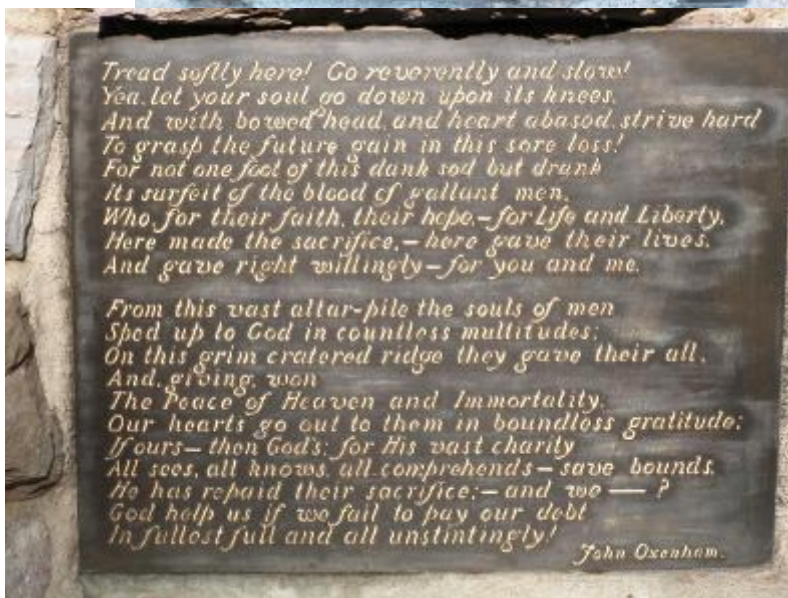 Tread softly here! Go reverently and slow!
Yea, let your soul go down upon its knees,
And with bowed head, and heart abased, strive hard
To grasp the future gain in this sore loss!
For not one foot of this dank sod but drank
Its surfeit of the blood of gallant men,
Who, for their faith, their hope,—for Life and Liberty,
Here made the sacrifice,—here gave their lives,
And gave right willingly—for you and me.

From this vast altar-pile the souls of men
Sped up to God in countless multitudes;
On this grim cratered ridge they gave their all,
And, giving, won
The Peace of Heaven and Immortality.
Our hearts go out to them in boundless gratitude;
If ours—then God's; for His vast charity
All sees, all knows, all comprehends—save bounds.
He has repaid their sacrifice;—and we — ?
God help us if we fail to pay our debt
In fullest full and all unstintingly!
John Oxenham.